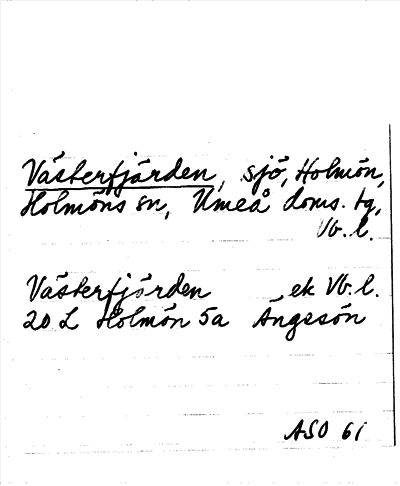 Västerfjärden, sjö, Holmön,
Holmöns sn, Umeå doms. tg,
Vb. l.
Västerfjärden ek Vb. l.
20 L Holmön 5a Ängesön
ASO 61